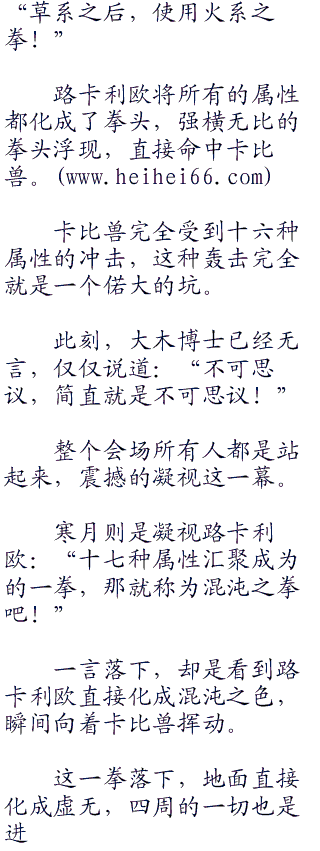 “草系之后，使用火系之
拳！”
路卡利欧将所有的属性
都化成了拳头，强横无比的
拳头浮现，直接命中卡比
兽。(www.heihei66.com)
卡比兽完全受到十六种
属性的冲击，这种轰击完全
就是一个偌大的坑。
此刻，大木博士已经无
言，仅仅说道：“不可思
议，简直就是不可思议！”
整个会场所有人都是站
起来，震撼的凝视这一幕。
寒月则是凝视路卡利
欧：“十七种属性汇聚成为
的一拳，那就称为混沌之拳
吧！”
一言落下，却是看到路
卡利欧直接化成混沌之色，
瞬间向着卡比兽挥动。
这一拳落下，地面直接
化成虚无，四周的一切也是
进